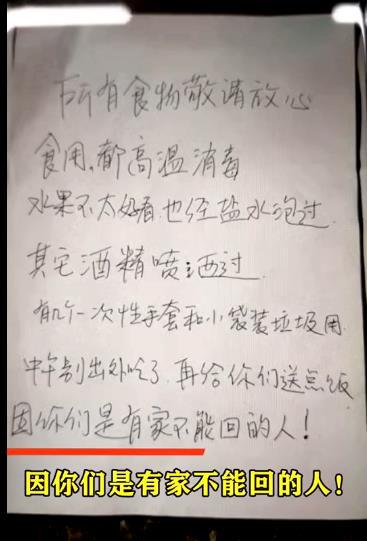 所有食物敬请放心
食用,都高温消毒
水果不太好看,也经盐水泡过.
其它酒精喷洒过.
有几个一次性手套和小袋装垃圾用
中午别出外吃了,再给你们送点饭
因你们是有家不能回的人!
因你们是有家不能回的人!